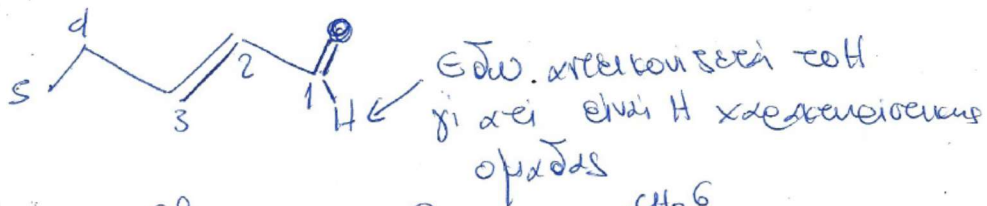 O
4
5
3
2
1
H
Εδω. απεικονιζεται το Η
γιατι ειναι Η χαρακτηριστικης
ομαδας
CH₂ 6